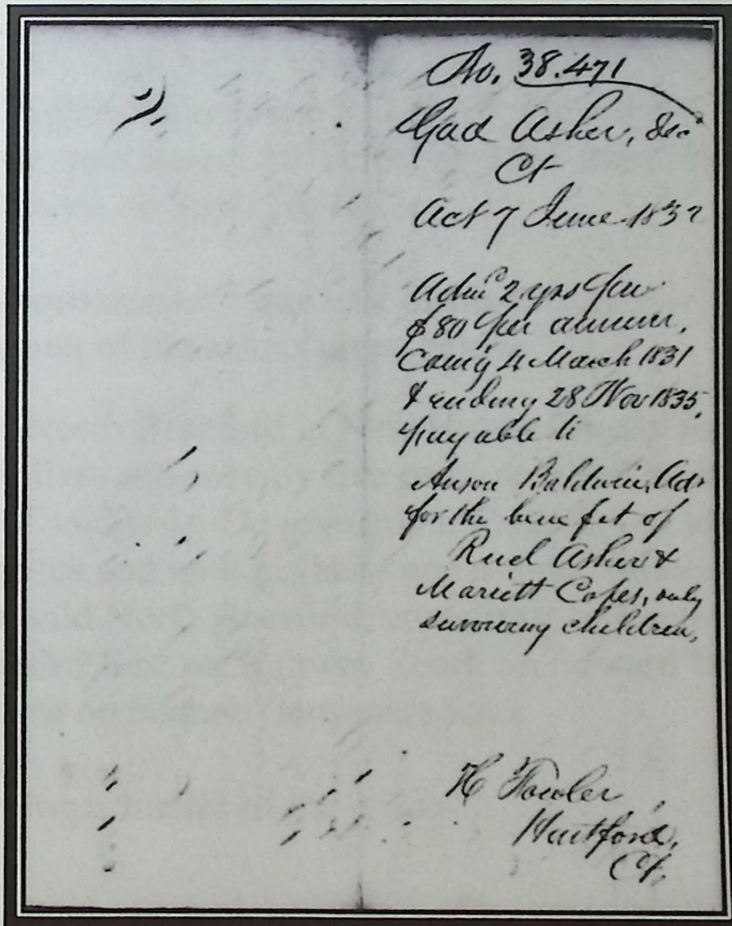 No. 38.471
Gad Asher, dec
Ct
Act 7 June 1832
Adm 2 yrs per
$80 per annum,
Comg 4 March 1831
& ending 28 Nov 1835,
payable to
Anson Baldwin, Adr
for the benefit of
Ruel Asher &
Mariett Copes, only
surviving children,
H Fowler,
Hartford,
Ct,